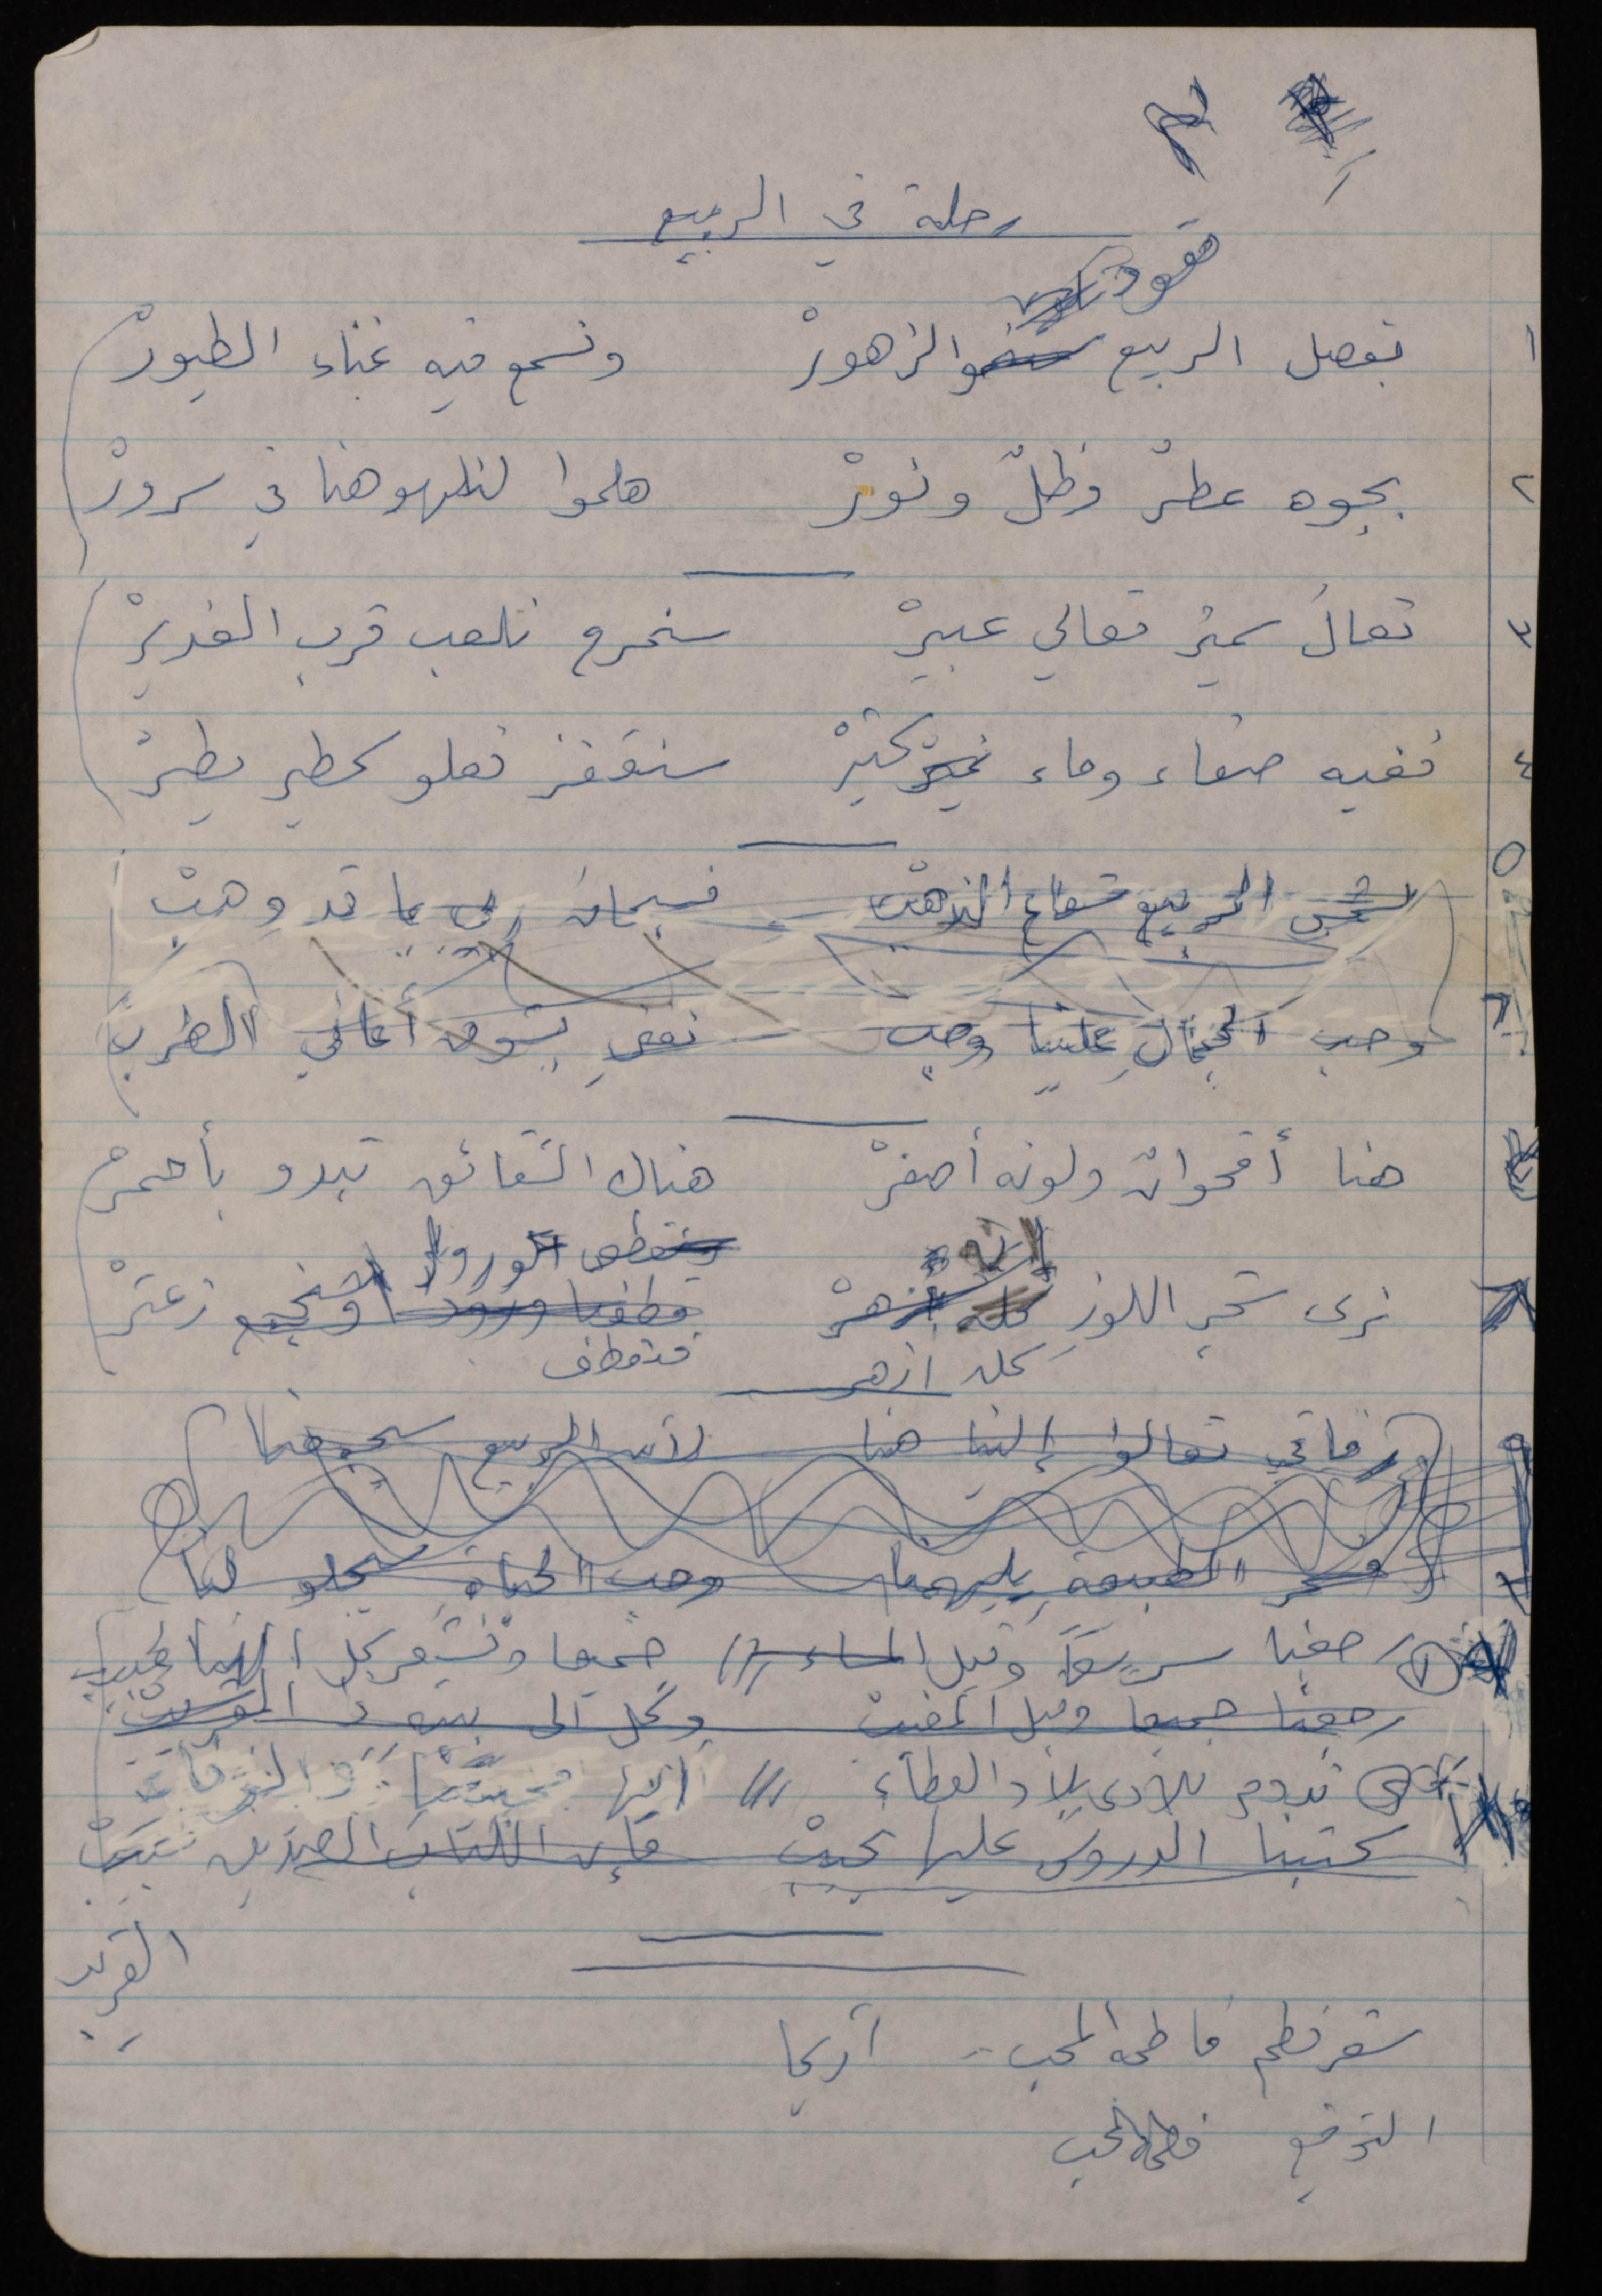 رحلة في الربيع
تعود
١ بفصل الربيع تنمو الزهورْ ونسمع فيه غناء الطيورْ
٢ بجوه عطرْ وظلّ ونورْ هلموا لنلهو هنا في سرورْ
٣ تعالَ سميرْ تعالي عبيرْ سنخرج نلعب قرب الغديرْ
٤ ففيه صفاء وماء نميرْ كثيرْ سنقفز نعلو كطير يطيرْ
٥ لشمس الربيع شعاع الذهبْ فسبحان ربي بما قد وهبْ
٦ وحب الجمال علينا وجب نغني بشوق أغاني الطرب
هنا أقحوان ولونه أصفرْ هناك الشقائق تبدو بأحمرْ
ونقطف الورود
نرى شجر اللوز كله أزهرْ قطفنا ورودا وزعترْ
كله ازهر فنقطف
رفاقي تعالوا إلينا هنا لأن الربيع سحر هنا
وسحر الطبيعة يلهمنا وحب الحياة سيحلو لنا
رجعنا سريعا وقبل المساء /// جميعا ونشعر بكل الهنا
رجعنا جميعا وقبل المغيب وكل الى بيته
تدوم بلادي بلاد العطاء ///
كتبنا الدروس عليها نجيبْ فإن الكتاب الصديق
شعر نظم فاطمة المحب - أريحا
التوقيع فاطمة المحب